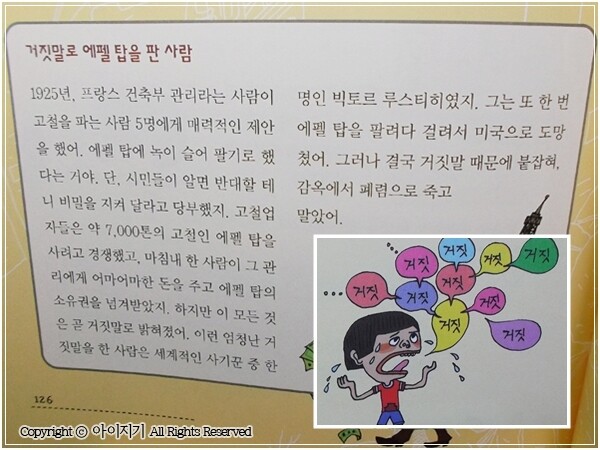 거짓말로 에펠 탑을 판 사람
1925년, 프랑스 건축부 관리라는 사람이
고철을 파는 사람 5명에게 매력적인 제안
을 했어. 에펠 탑에 녹이 슬어 팔기로 했
다는 거야. 단, 시민들이 알면 반대할 테
니 비밀을 지켜 달라고 당부했지. 고철업
자들은 약 7,000톤의 고철인 에펠 탑을
사려고 경쟁했고, 마침내 한 사람이 그 관
리에게 어마어마한 돈을 주고 에펠 탑의
소유권을 넘겨받았지. 하지만 이 모든 것
은 곧 거짓말로 밝혀졌어. 이런 엄청난 거
짓말을 한 사람은 세계적인 사기꾼 중 한
명인 빅토르 루스티히였지. 그는 또 한 번
에펠 탑을 팔려다 걸려서 미국으로 도망
쳤어. 그러나 결국 거짓말 때문에 붙잡혀,
감옥에서 폐렴으로 죽고
말았어.
거짓
거짓
거짓
거짓
거짓
거짓
거짓
거짓
거짓
거짓
126
Copyright ⓒ 아이지기 All Rights Reserved